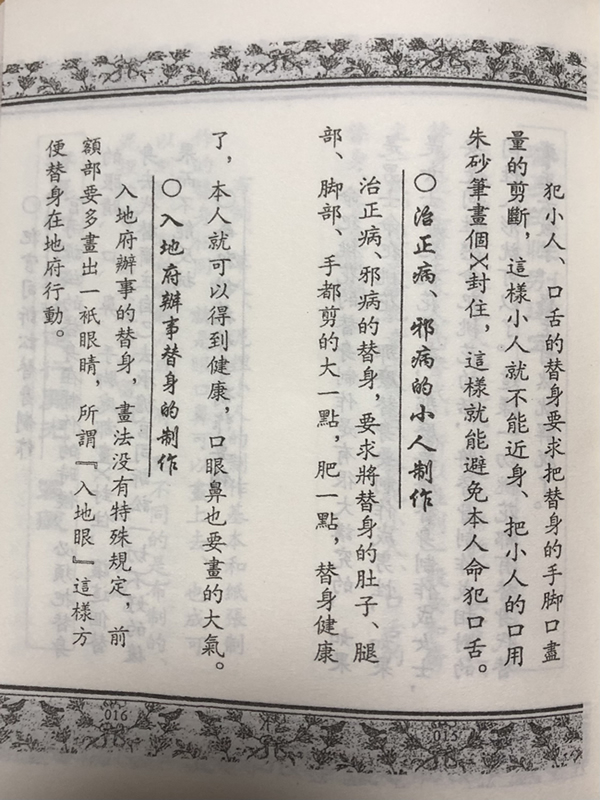 犯小人、口舌的替身要求把替身的手脚口盡
量的剪斷，這樣小人就不能近身、把小人的口用
朱砂筆畫個X封住，這樣就能避免本人命犯口舌。
○治正病、邪病的小人制作
治正病、邪病的替身，要求將替身的肚子、腿
部、脚部、手都剪的大一點，肥一點，替身健康
了，本人就可以得到健康，口眼鼻也要畫的大氣。
○入地府辦事替身的制作
入地府辦事的替身，畫法没有特殊規定，前
額部要多畫出一衹眼睛，所謂『入地眼』這樣方
便替身在地府行動。
016
015